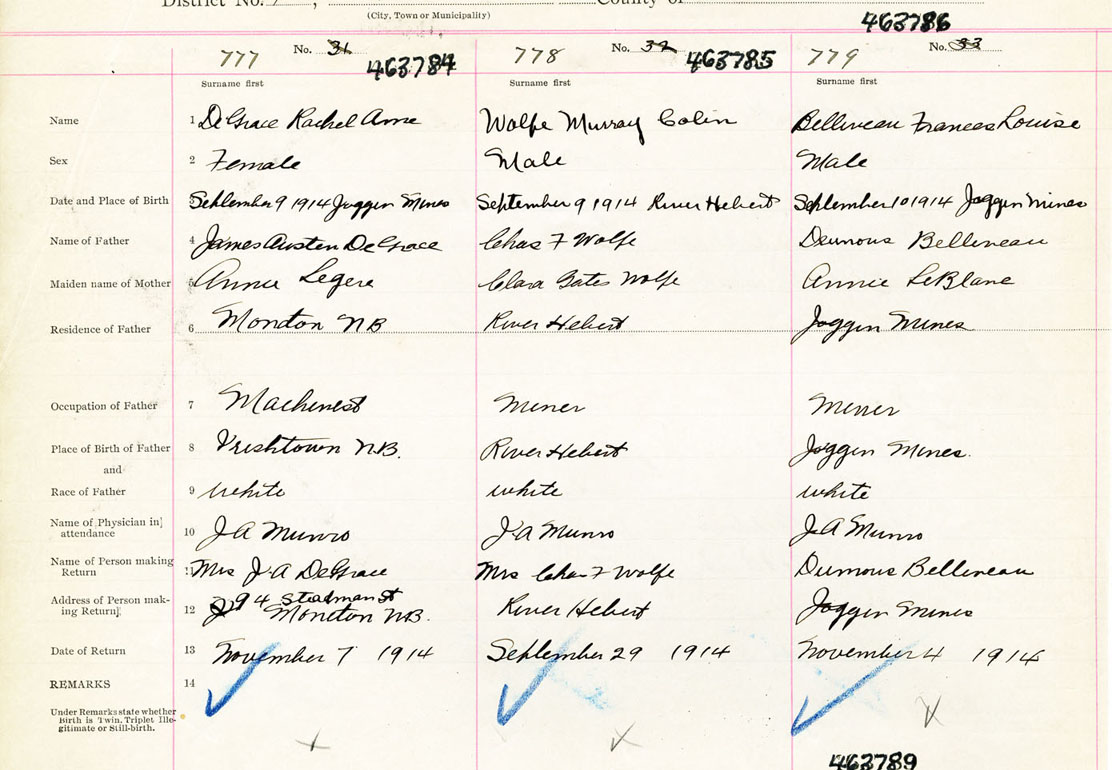 District No. 7, County of
(City, Town or Municipality)
463786
777 No. 31 463784 778 No. 32 463785 779 No. 33
Surname first Surname first Surname first
Name 1 DeGrace Rachel Anne Wolfe Murray Colin Belliveau Frances Louise
Sex 2 Female Male Male
Date and Place of Birth 3 September 9 1914 Joggin Mines September 9 1914 River Hebert September 10 1914 Joggin Mines
Name of Father 4 James Austen DeGrace Chas F Wolfe Belliveau
Maiden name of Mother 5 Annie Legere Clara Gates Wolfe Annie LeBlanc
Residence of Father 6 Moncton NB River Hebert Joggin Mines
Occupation of Father 7 Machinest Miner Miner
Place of Birth of Father 8 Irishtown N.B. River Hebert Joggin Mines.
and
Race of Father 9 white white white
Name of Physician in
attendance 10 J A Munro J A Munro J A Munro
Name of Person making
Return 11 Mrs J. A DeGrace Mrs Chas F Wolfe Belliveau
Address of Person mak-
ing Return 12 94 Steadman St Moncton N.B. River Hebert Joggin Mines
Date of Return 13 November 7 1914 September 29 1914 November 4 1914
REMARKS 14
Under Remarks state whether
Birth is Twin, Triplet Ille-
gitimate or Still-birth.
463789